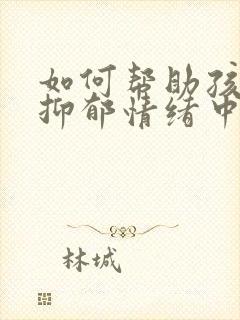 如何帮助孩
抑郁情绪中
林城